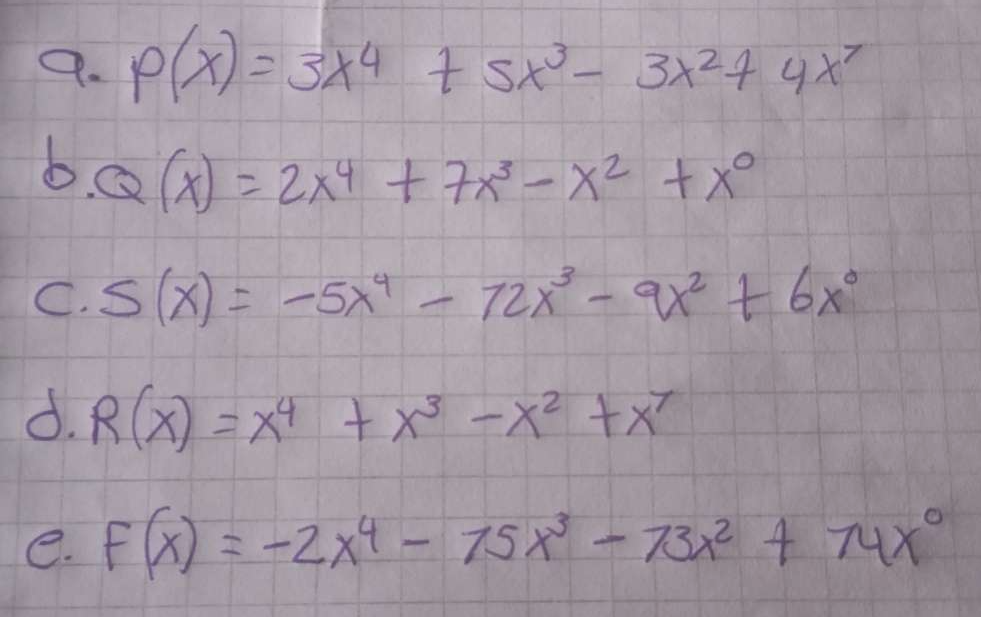 a. P(x) = 3x⁴ + 5x³ - 3x² + 4x⁷
b. Q(x) = 2x⁴ + 7x³ - x² + x⁰
c. S(x) = -5x⁴ - 12x³ - 9x² + 6x⁰
d. R(x) = x⁴ + x³ - x² + x⁷
e. F(x) = -2x⁴ - 15x³ - 13x² + 14x⁰